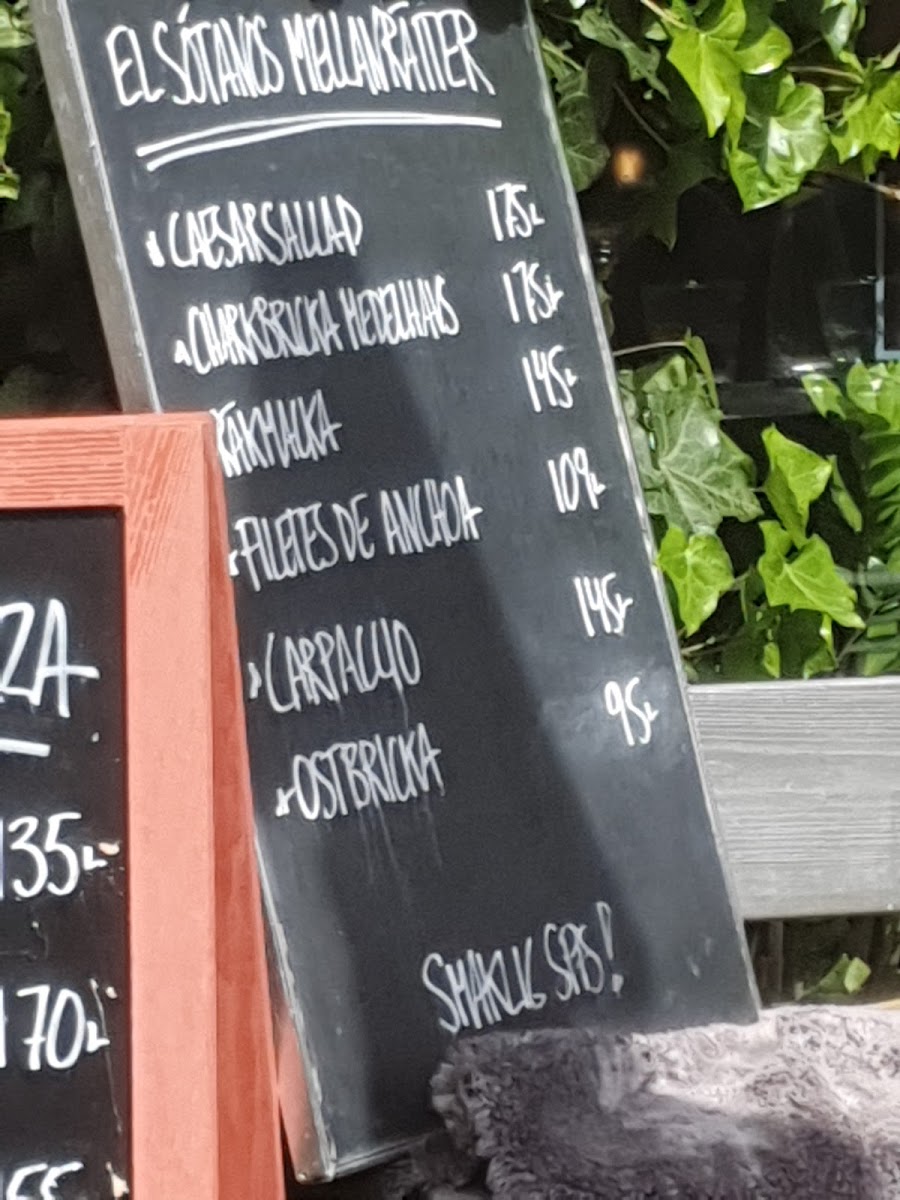 EL SÓTANOS MELLANRÄTTER
CAESARSALLAD 175:-
CHARKBRICKA MEDELHAVS 175:-
RÄKMACKA 145:-
FILETES DE ANCHOA 109:-
CARPACCIO 145:-
OSTBRICKA 95:-
SMAKLIG SPIS!
ZA
135:-
170:-
55